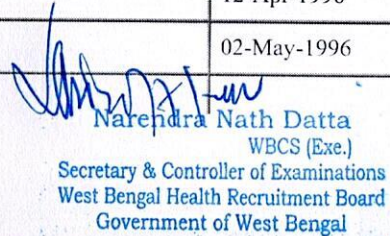 02-May-1996
Narendra Nath Datta
WBCS (Exe.)
Secretary & Controller of Examinations
West Bengal Health Recruitment Board
Government of West Bengal